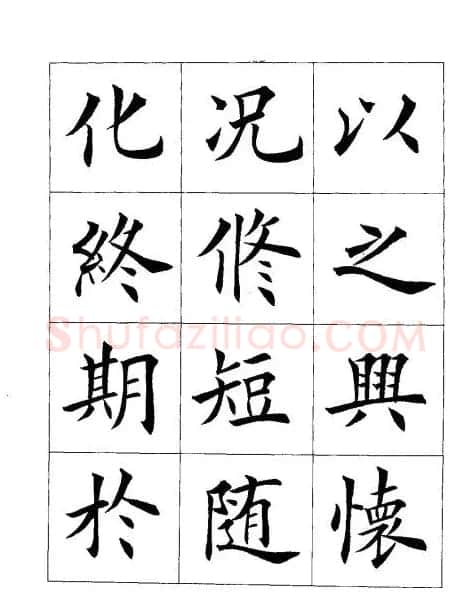 以之興懷
况修短随
化終期於
Shufaziliao.com